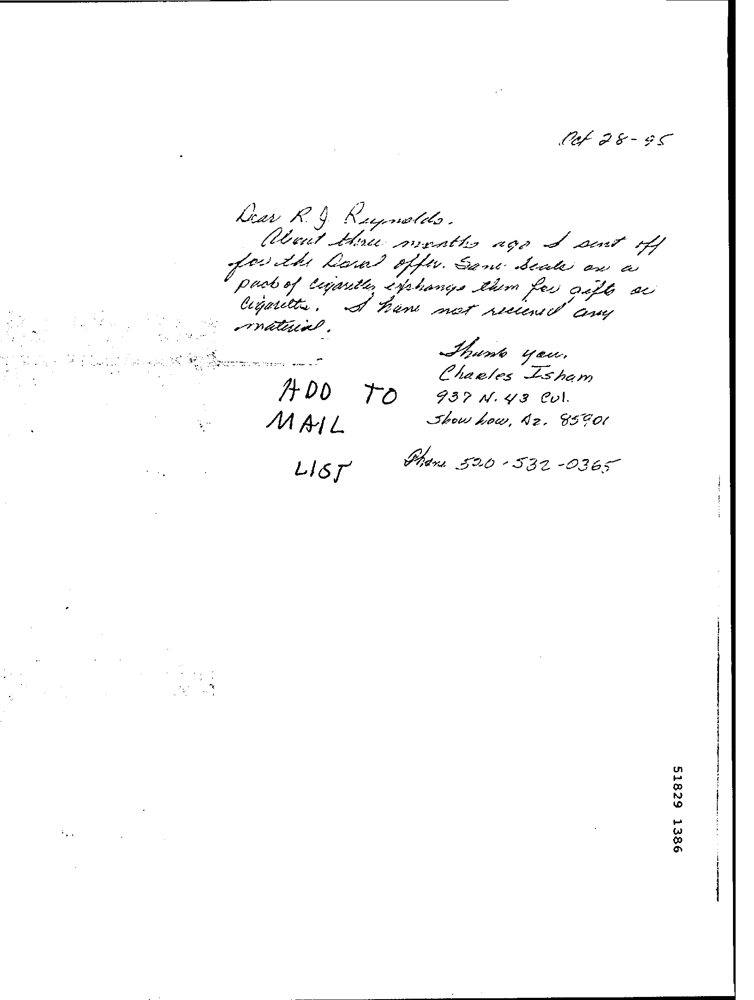 Oct 28-95
Dear R. J Reynolds.
About three months ago I sent off
for the Doral offer. Save Seals on a
pack of cigarettes, exchange them for gifts or
Cigaretts. I have not recieved any
material.
Thank you.
Charles Isham
937 N. 43 Cul.
Show Low, Az. 85901
Phone 520-532-0365
ADD TO
MAIL
LIST
51829 1386